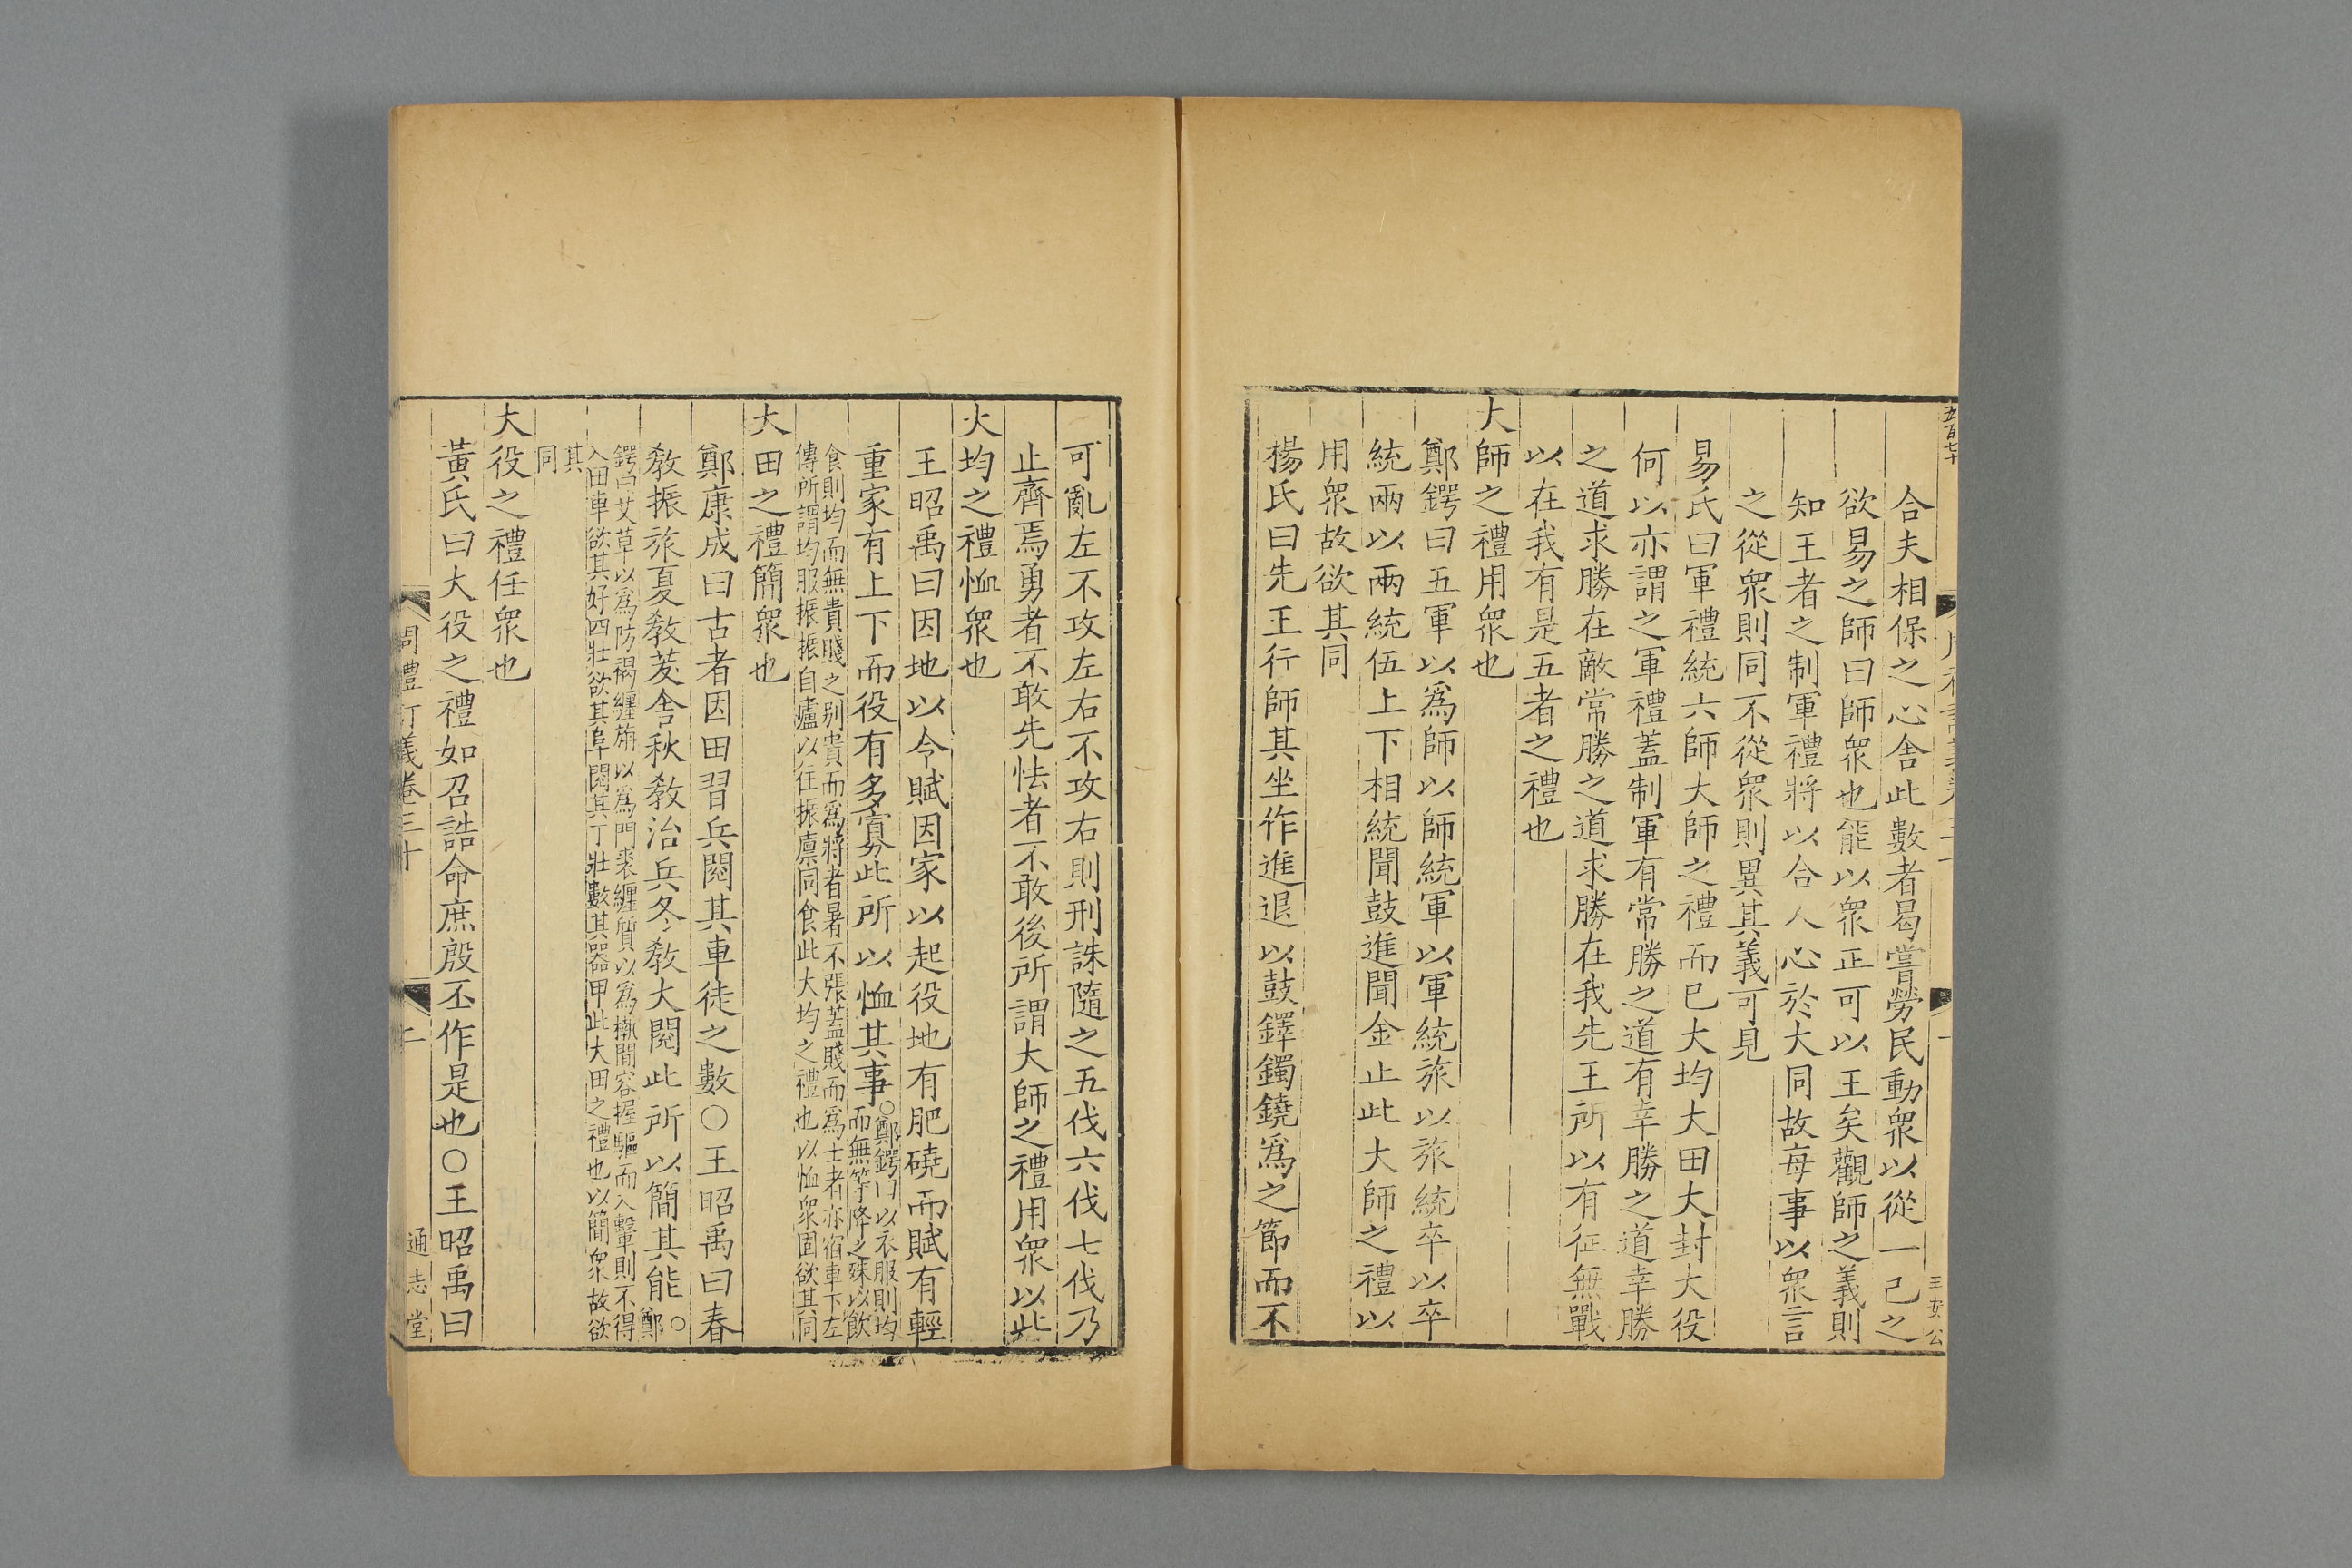 合夫相保之心舍此數者曷嘗勞民動衆以從一己之
欲易之師曰師衆也能以衆正可以王矣觀師之義則
知王者之制軍禮將以合人心於大同故每事以衆言
之從衆則同不從衆則異其義可見
易氏曰軍禮統六師大師之禮而已大均大田大封大役
何以亦謂之軍禮蓋制軍有常勝之道有幸勝之道幸勝
之道求勝在敵常勝之道求勝在我先王所以有征無戰
以在我有是五者之禮也
大師之禮用衆也
鄭鍔曰五軍以爲師以師統軍以軍統旅以旅統卒以卒
統兩以兩統伍上下相統聞鼓進聞金止此大師之禮以
用衆故欲其同
楊氏曰先王行師其坐作進退以鼓鐸鐲鐃爲之節而不
可亂左不攻左右不攻右則刑誅隨之五伐六伐七伐乃
止齊焉勇者不敢先怯者不敢後所謂大師之禮用衆以此
大均之禮恤衆也
王昭禹曰因地以令賦因家以起役地有肥磽而賦有輕
重家有上下而役有多寡此所以恤其事○鄭鍔曰以衣服則均
而無等降之殊以飲
食則均而無貴賤之别貴而爲將者暑不張蓋賤而爲士者亦宿車下左
傳所謂均服振振自廬以往振廪同食此大均之禮也以恤衆固欲其同
大田之禮簡衆也
鄭康成曰古者因田習兵閱其車徒之數○王昭禹曰春
敎振旅夏敎茇舍秋敎治兵冬敎大閱此所以簡其能○
鄭
鍔曰艾草以爲防褐纏旃以爲門裘纏質以爲槸間容握驅而入擊則不得
入田車欲其好四壯欲其阜閱其丁壯數其器甲此大田之禮也以簡衆故欲
其
同
大役之禮任衆也
黃氏曰大役之禮如召誥命庶殷丕作是也○王昭禹曰
周禮訂義卷三十
二
通志堂